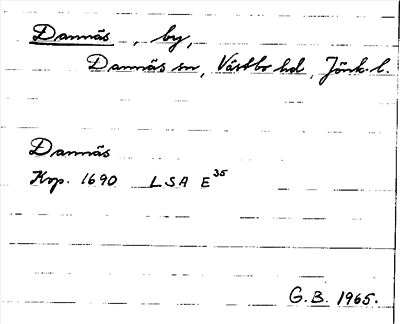 Dannäs, by,
Dannäs sn, Västbo hd, Jönk. l.
Dannäs
Kop. 1690 LSA E 35
G.B. 1965.